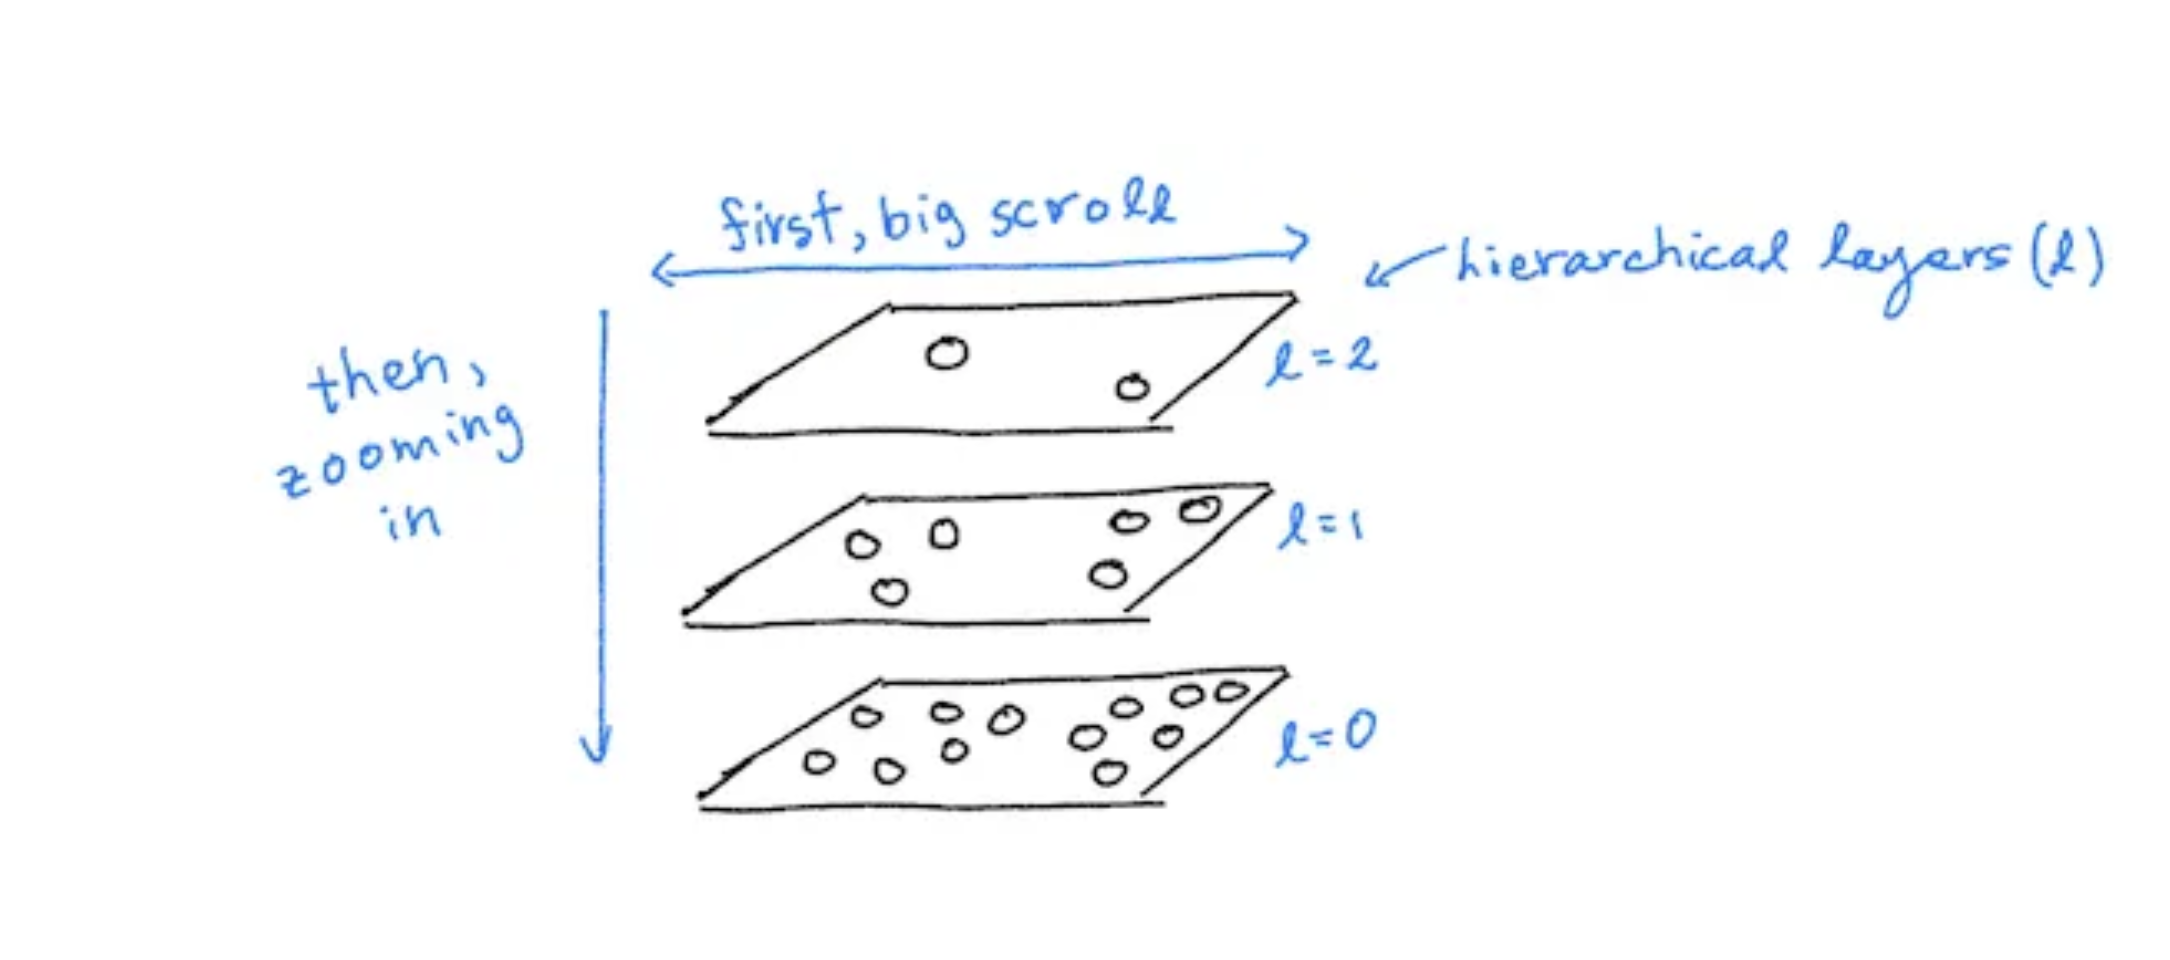 first, big scroll
hierarchical layers (l)
then,
zooming
in
l=2
l=1
l=0